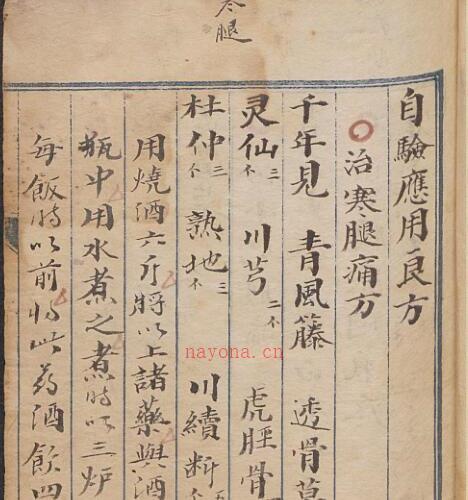 寒腿
自驗應用良方
治寒腿痛方
千年見 青風籐 透骨草
灵仙三 川芎二 虎脛骨
杜仲三 熟地三 川續断
用燒酒六斤將以上諸藥與酒
瓶中用水煮之煮時以三炉
每飯時以前將此药酒飲四
nayona.cn